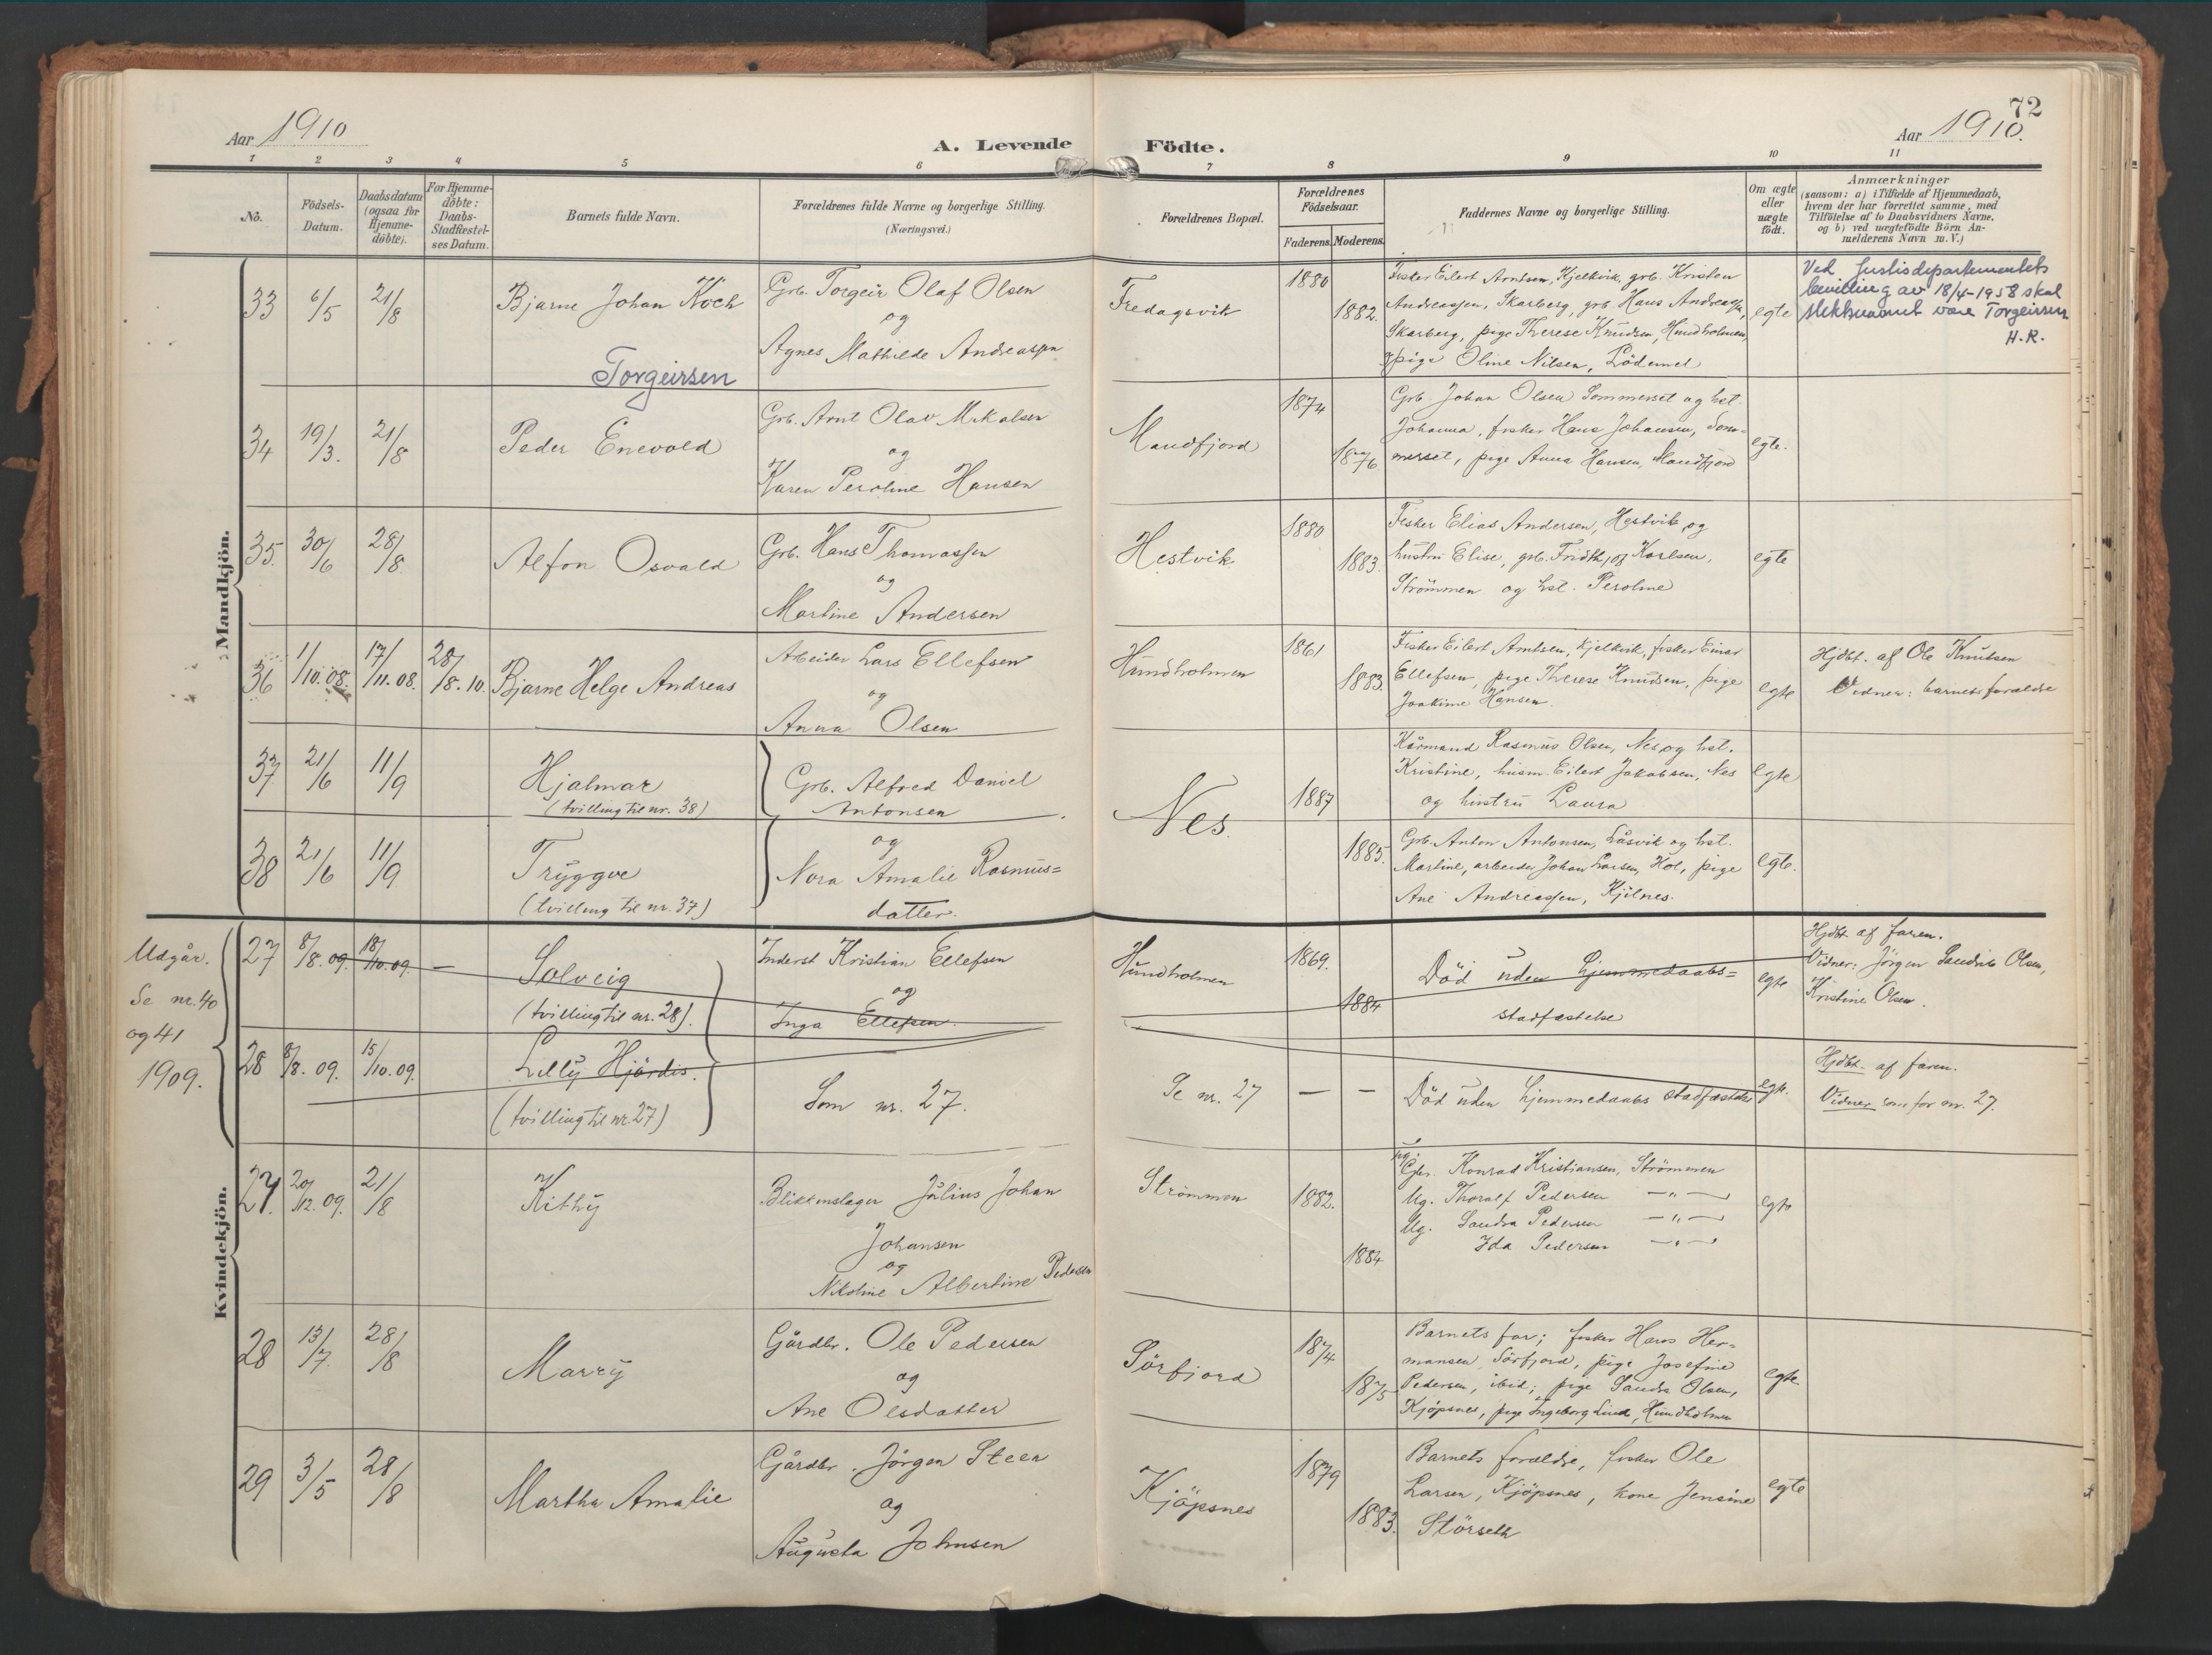 72
Aar 1910
A. Levende Födte.
Aar 1910.
1 2 3 4 5 6 7 8 9 10 11
No.
Födsels-
Datum.
Daabsdatum
(ogsaa for
Hjemme-
döbte).
For Hjemme-
döbte:
Daabs-
Stadfæstel-
ses Datum.
Barnets fulde Navn.
Forældrenes fulde Navne og borgerlige Stilling.
(Næringsvei.)
Forældrenes Bopæl.
Forældrenes
Födselsaar.
Faderens. Moderens.
Faddernes Navne og borgerlige Stilling.
Om ægte
eller
uægte
födt.
Anmærkninger
(saasom: a) i Tilfælde af Hjemmedaab,
hvem der har forrettet samme, med
Tilföielse af to Daabsvidners Navne.
og b) ved uægtefödte Börn An-
melderens Navn m. V.)
Mandkjön.
33 6/5 21/8
Bjarne Johan Koch
Torgeirsen
Grb. Torgeir Olaf Olsen
og
Agnes Mathilde Andreassen
Fredagsvik
1880
1882.
Fisker Eilert Arntsen, Kjelkvik, grb. Kristen
Andreassen, Skarberg, grb Hans Andreassen,
Skarberg, pige Therese Knudsen, Hundholmen,
pige Oline Nilsen, Lödemel
egte
Ved Justisdepartementets
bevilling av 18/4-1958 skal
slektsnavnet være Torgeirsen
H.R.
34 19/3. 21/8
Peder Enevold
Grb. Arnt Olav Mikalsen
og
Karen Peroline Hansen
Mandfjord
1874
1876.
Grb. Johan Olsen Sommerset og hst.
Johanna, fisker Hans Johansen, Som-
merset, pige Anna Hansen, Mandfjord
egte.
35. 30/6 28/8
Alfon Osvald
Grb. Hans Thomassen
og
Martine Andersen
Hestvik
1880
1883.
Fisker Elias Andersen, Hestvik, og
hustru Elise, grb. Fridthjof Karlsen,
Strömmen og hst. Peroline
egte
36 1/10.08. 17/11.08. 28/8.10.
Bjarne Helge Andreas
Arbeider Lars Ellefsen
og
Anna Olsen
Hundholmen
1861
1883.
Fisker Eilert Arntsen, Kjelkvik, fisker Einar
Ellefsen, pige Therese Knudsen, pige
Joakime Hansen.
egte
Hjdbt. af Ole Knutsen
Vidner: barnets forældre
37 21/6 11/9
Hjalmar
(tvilling til nr. 38)
Grb. Alfred Daniel
Antonsen
og
Nora Amalie Rasmus=
datter.
Nes.
1887
1885.
Kårmand Rasmus Olsen, Nes og hst.
Kristine, husm. Eilert Jakobsen, Nes
og hustru Laura
egte
38 21/6 11/9
Tryggve
(tvilling til nr. 37)
Grb. Anton Antonsen, Låsvik og hst.
Martine, arbeider Johan Larsen, Hol, pige
Ane Andreassen, Kjilnes.
egte.
Udgår.
Se nr. 40
og 41
1909.
27 8/8.09. 18/10.09. —
Solveig
(tvilling til nr. 28).
Inderst Kristian Ellefsen
og
Inga Ellefsen.
Hundholmen
1869.
1884
Död uden hjemmedaabs=
stadfæstelse
egte
Hjdbt. af faren.
Vidner: Jörgen Olsen,
Kristine Olsen.
28 8/8.09. 15/10.09.
Lilly Hjördis.
(tvilling til nr. 27)
Som nr. 27.
Se nr. 27
— —
Död uden hjemmedaabs stadfæstelse
egte.
Hjdbt. af faren.
Vidner som for nr. 27.
Kvindekjön.
27. 20/12.09. 21/8
Kithy
Blikkenslager Julius Johan
Johansen
og
Nikoline Albertine Pedersen
Strömmen
1882.
1884
Gbr. Konrad Kristiansen, Strömmen
Ug. Thoralf Pedersen —"—
Ug. Sandra Pedersen —"—
Ida Pedersen —"—
egte
28 13/7. 28/8
Marry
Gårdbr. Ole Pedersen
og
Ane Olsdatter
Sörfjord
1874
1875
Barnets far; fisker Hans Her-
mansen, Sörfjord, pige Josefine
Pedersen, ibid; pige Sandra Olsen,
Kjöpsnes, pige Ingeborg Lind, Hundholmen
egte.
29 3/5 28/8
Martha Amalie
Gårdbr. Jörgen Steen
og
Augusta Johnsen
Kjöpsnes
1879
1883.
Barnets forældre, fisker Ole
Larsen, Kjöpsnes, kone Jensine
Störseth
egte